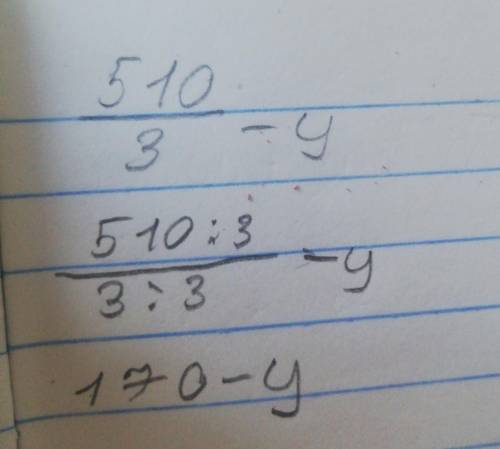 510/3 - y
510:3/3:3 - y
170 - y